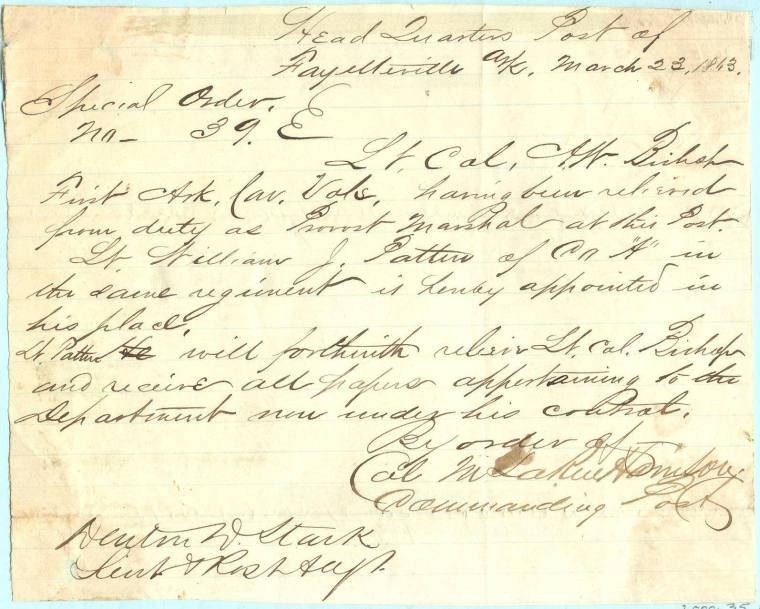 Head Quarters Post of
Fayetteville Ark. March 23, 1863.
Special Order.
No- 39. E
Lt. Col, A.W. Bishop
First Ark. Cav. Vols. having been relieved
from duty as Provost Marshal at this Post.
Lt. William J. Patten of Co "A" in
the same regiment is hereby appointed in
his place.
Lt Patten He will forthwith relieve Lt. Col. Bishop
and receive all papers appertaining to the
Department now under his control.
By order of
Col M LaRue Harrison
Commanding Post
Denton D. Stark
Lieut & Post Adjt.